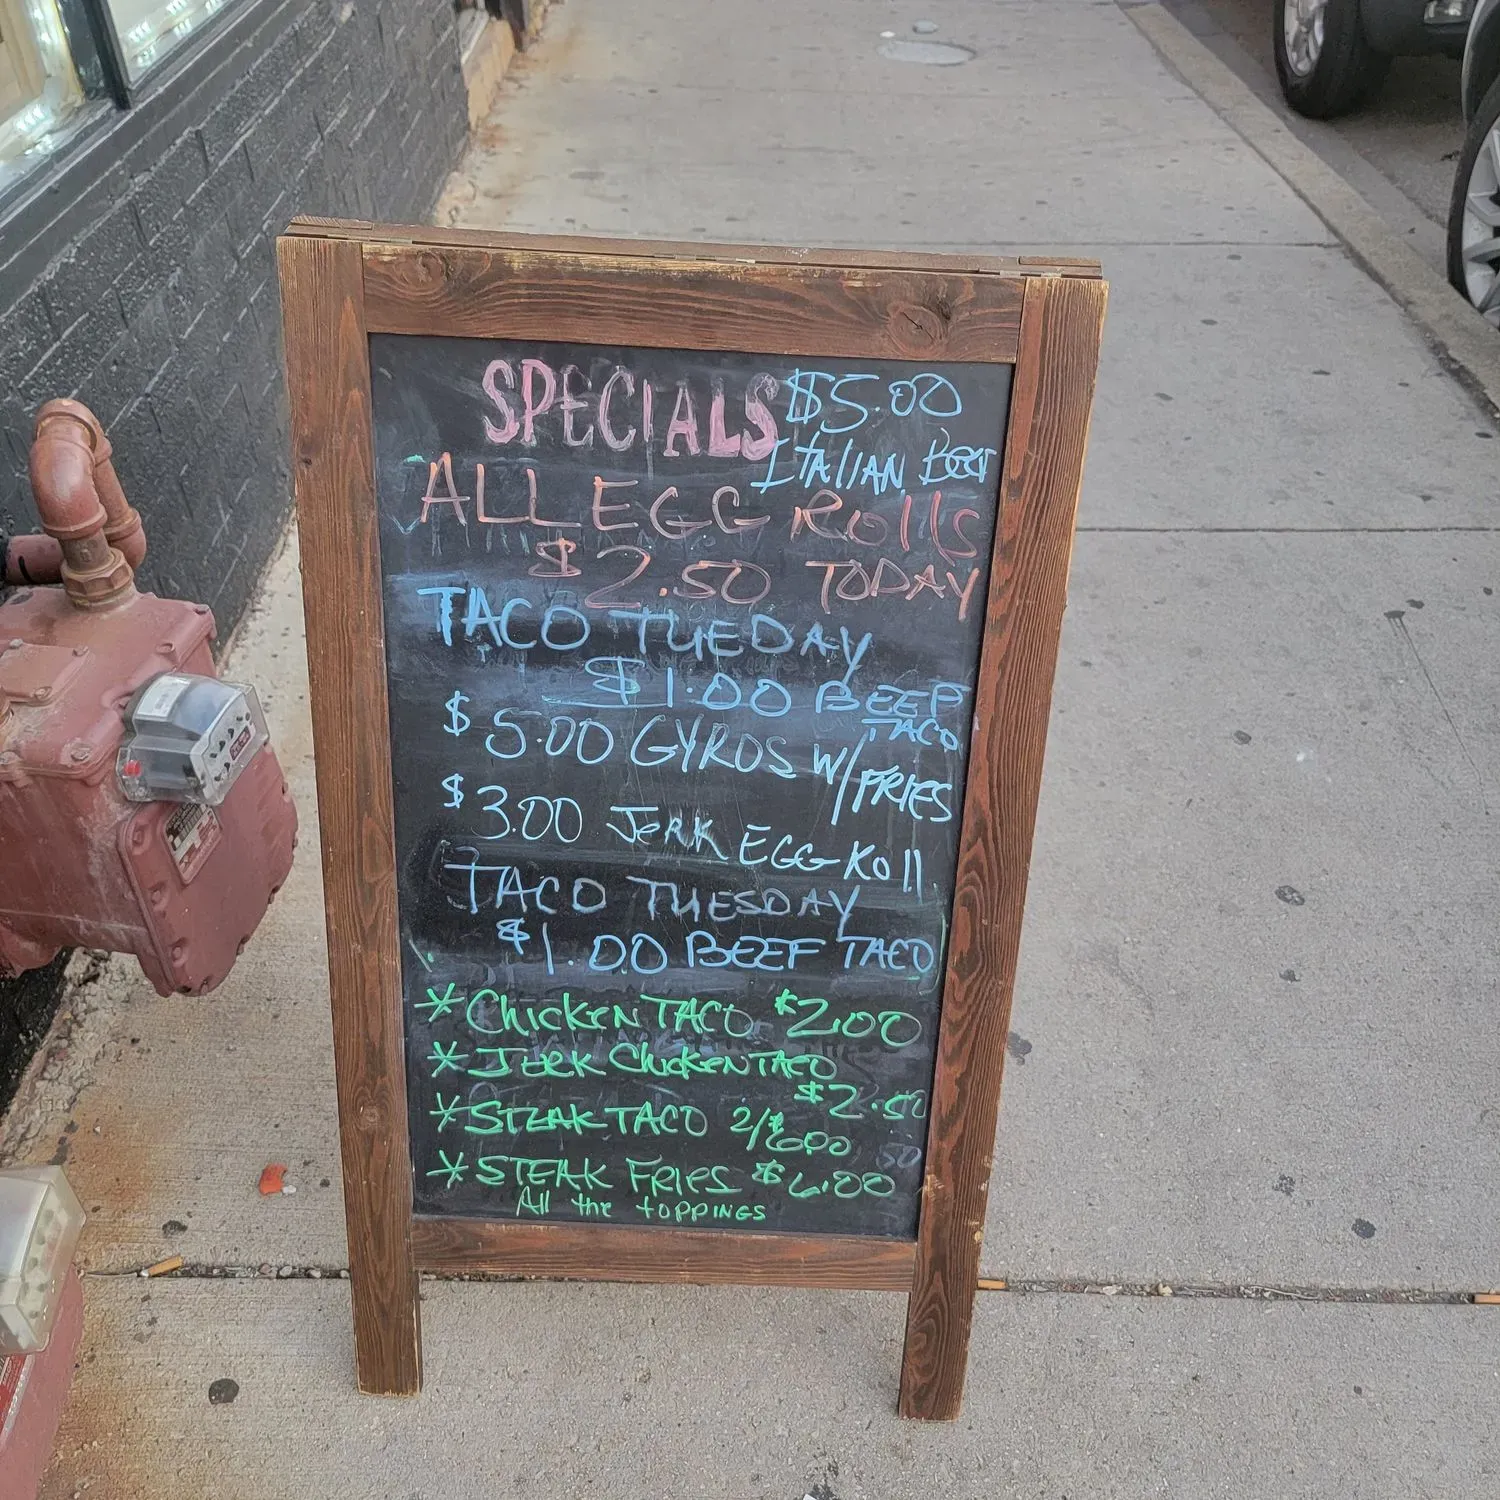 SPECIALS $5.00
ITAlIAN Beef
ALL EGG Rolls
$2.50 TODAY
TACO TUEDAY
$1.00 BEEF
TACO
$5.00 GYROS W/FRIES
$3.00 JerK EGG Roll
TACO TUESDAY
$1.00 BEEF TACO
* ChickEN TACO $2.00
* JERK ChickEN TACO
$2.50
* STEAK TACO 2/$6.00
* STEAK FRIES $6.00
All the toppiNGS